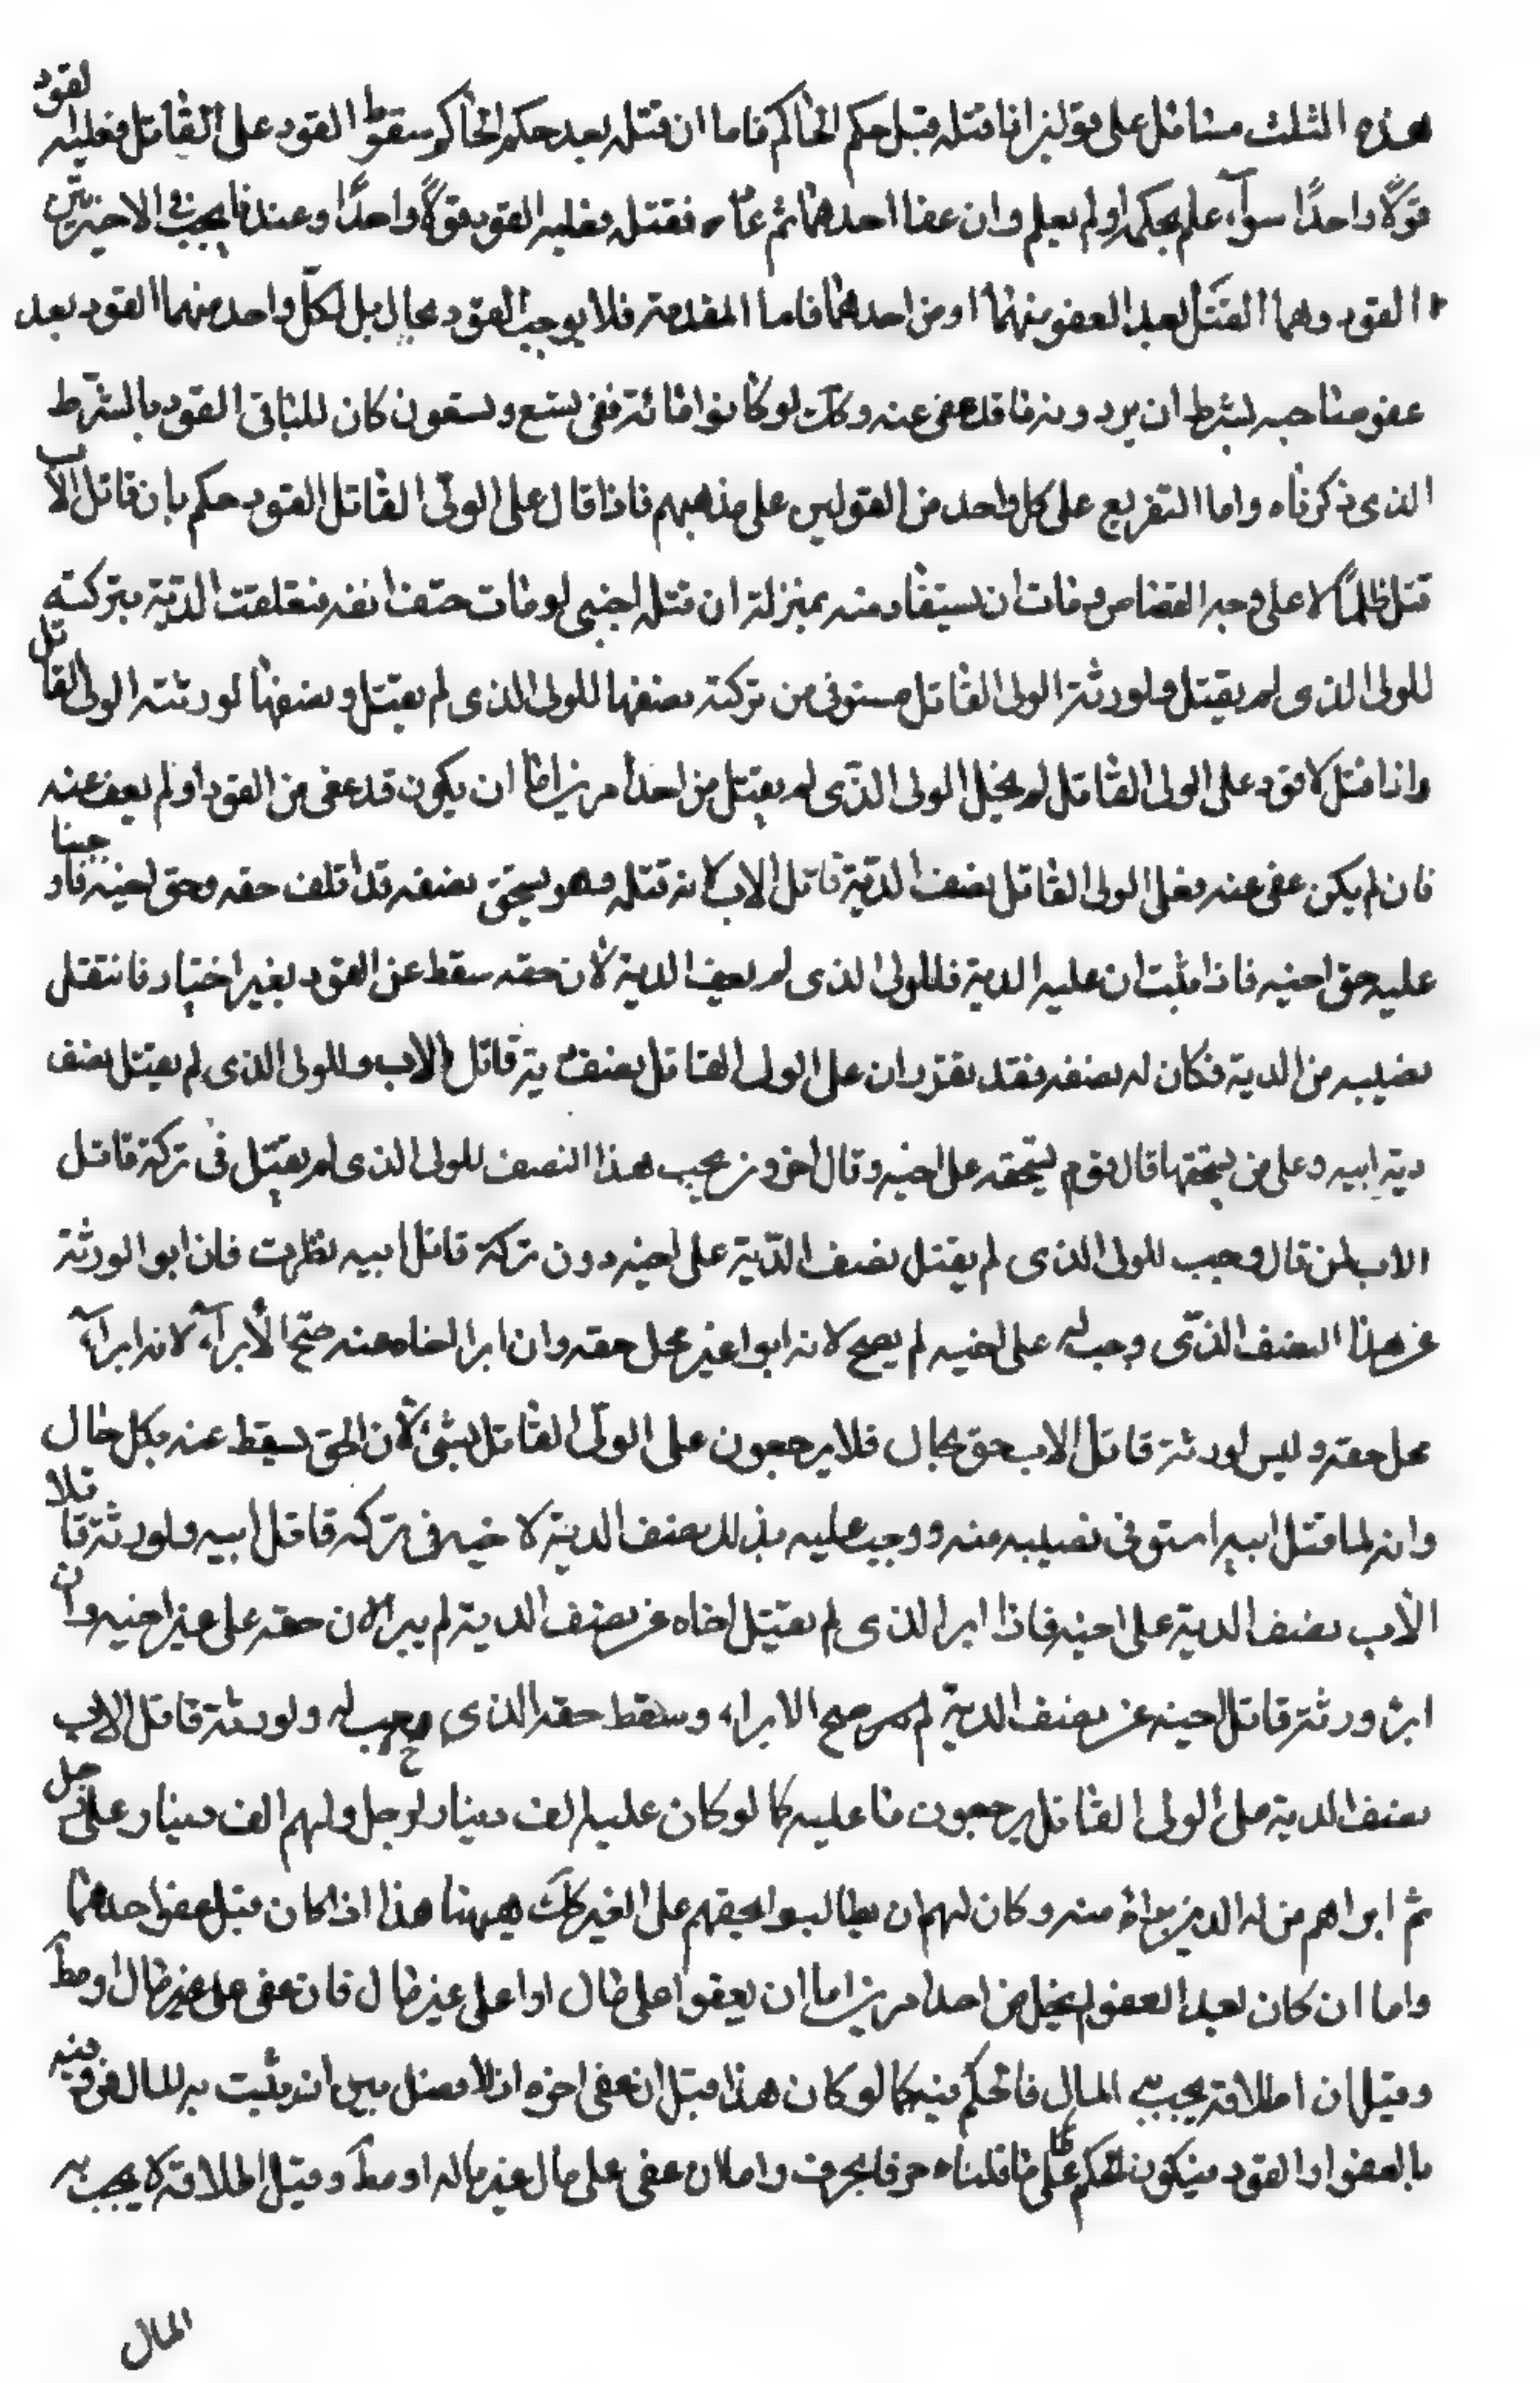 هذه الثلث مسائل على قولين اذا قتله قبل حكم الحاكم فاما ان قتله بعد حكم الحاكم سقوط القود على القاتل فعليه القود
قولًا واحدًا سوآء علم بحكمه او لم يعلم وان عفا احدهما ثم عاد فقتله فعليه القود قولًا واحدًا وعندنا يجب في الاخيرتين
القود وهما القتل بعد العفو منهما او من احدهما فاما المقدمة فلا يوجب القود بحال بل لكل واحد منهما القود بعد
عفو صاحبه بشرط ان يرد دية ما قد عفى عنه وكك لو كانوا مائة فعفى تسع وتسعون كان للباقى القود بالشرط
الذى ذكرناه واما التفريع على كل واحد من القولين على مذهبهم فاذا قال على الولى القاتل القود حكم بان قاتل الاب
قتل ظلمًا لا على وجه القصاص وفات ان يستقاد منه بمنزلة ان قتله اجنبى او مات حتف انفه فتعلقت الدية بتركته
للولى الذى لم يقتل ولورثة الولى القاتل مستوفى من تركته نصفها للولى الذى لم يقتل ونصفها لورثته الولى القاتل
واذا قتل لا قود على الولى القاتل لم يخل الولى الذى لم يقتل من احد امرين اما ان يكون قد عفى من القود او لم يعف عنه
فان لم يكن عفى عنه فعلى الولى القاتل نصف الدية قاتل الاب لانه قتله وهو يستحق نصفه قد اتلف حقه وحق اخيه فاوجبنا
عليه حق اخيه فاذا ثبت ان عليه الدية فللولى الذى لم يعف الدية لان حقه سقط عن القود بغير اختياره فانتقل
نصيبه من الدية فكان له نصفه فقد تقرر ان على الولى القاتل نصف دية قاتل الاب وللولى الذى لم يقتل نصف
دية ابيه وعلى من يستحقها قال قوم يستحقه على اخيه وقال اخرون يجب هذا النصف للولى الذى لم يقتل فى تركة قاتل
الاب فمن قال وجب للولى الذى لم يقتل نصف الدية على اخيه دون تركة قاتل ابيه نظرت فان ابرا لورثة
عن هذا النصف الذى وجب له على اخيه لم يصح لانه ابرا غير محل حقه وان ابرا اخاه عنه صح الأبرآء لانه ابرآء
محل حقه وليس لورثة قاتل الاب حق بحال فلا يرجعون على الولى القاتل بشئ لان الحق يسقط عنه بكل حال
وانه لما قتل ابيه استوفى نصيبه منه ووجب عليه بذلك نصف الدية لاخيه فى تركه قاتل ابيه ولورثة قاتل
الأب نصف الدية على اخيه فاذا ابرا الذى لم يقتل اخاه عن نصف الدية لم يبرا لان حقه على غير اخيه وان
ابرا ورثة قاتل اخيه عن نصف الدية صح الابراء وسقط حقه الذى وجب له ولورثة قاتل الاب
نصف الدية على الولى القاتل يرجعون ما عليه كما لو كان عليه الف دينار لرجل ولهم الف دينار على رجل
ثم ابراهم من له الدين براة منه وكان لهم ان يطالبوا بحقهم على الغير كك هيهنا هذا اذا كان قبل عفو احدهما
واما ان كان بعد العفو لم يخل من احد امرين اما ان يعفوا على مال اوا على غير مال فان عفى على غير مال او مطلقا
وقيل ان اطلاقه يجب به المال فالحكم فيه كما لو كان هذا قبل ان عفى اخوه اذ لا فصل بين انه يثبت به المال فرق فيه
بالعفو او القود فيكون الحكم على ما قلناه حرفا بحرف واما ان عفى على مال غير ماله او مطلقا وقيل اطلاقه لا يجب به
المال